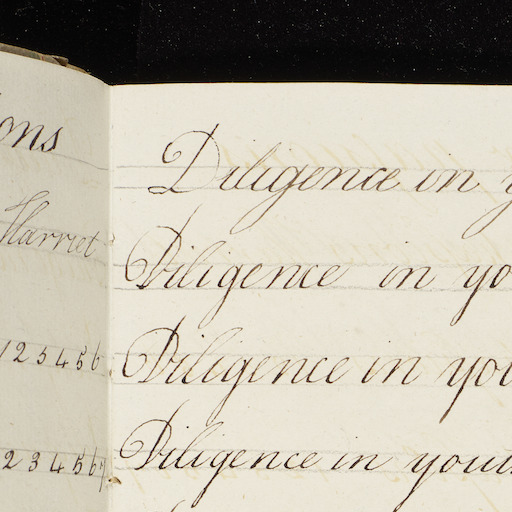 ons
Harriet
123456
234567
Diligence in y
Diligence in yo
Diligence in you
Diligence in yout